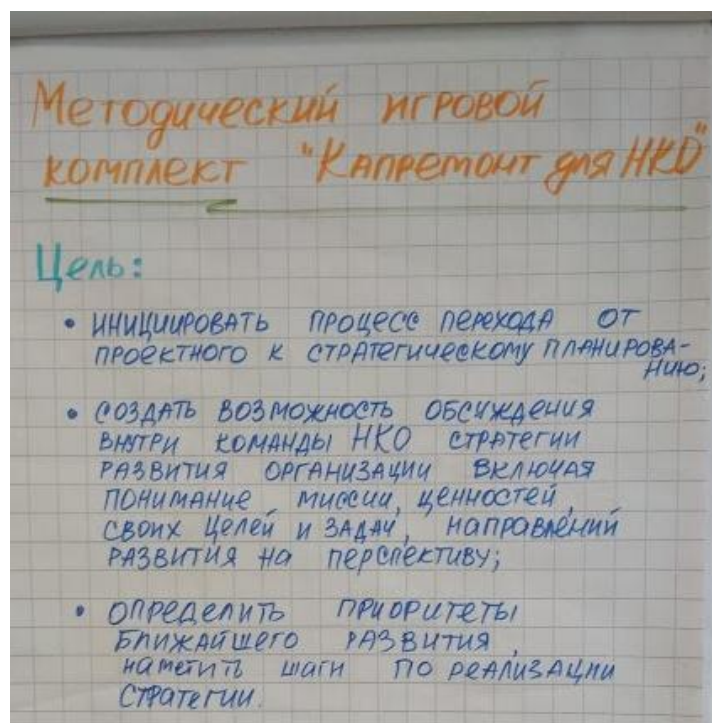 Методический игровой
комплект "Капремонт для НКО"
Цель:
• ИНИЦИИРОВАТЬ ПРОЦЕСС ПЕРЕХОДА ОТ
ПРОЕКТНОГО К СТРАТЕГИЧЕСКОМУ ПЛАНИРОВА-
НИЮ;
• СОЗДАТЬ ВОЗМОЖНОСТЬ ОБСУЖДЕНИЯ
ВНУТРИ КОМАНДЫ НКО СТРАТЕГИИ
РАЗВИТИЯ ОРГАНИЗАЦИИ ВКЛЮЧАЯ
ПОНИМАНИЕ МИССИИ, ЦЕННОСТЕЙ,
СВОИХ ЦЕЛЕЙ И ЗАДАЧ, НАПРАВЛЕНИЙ
РАЗВИТИЯ НА ПЕРСПЕКТИВУ;
• ОПРЕДЕЛИТЬ ПРИОРИТЕТЫ
БЛИЖАЙШЕГО РАЗВИТИЯ,
НАМЕТИТЬ ШАГИ ПО РЕАЛИЗАЦИИ
СТРАТЕГИИ.